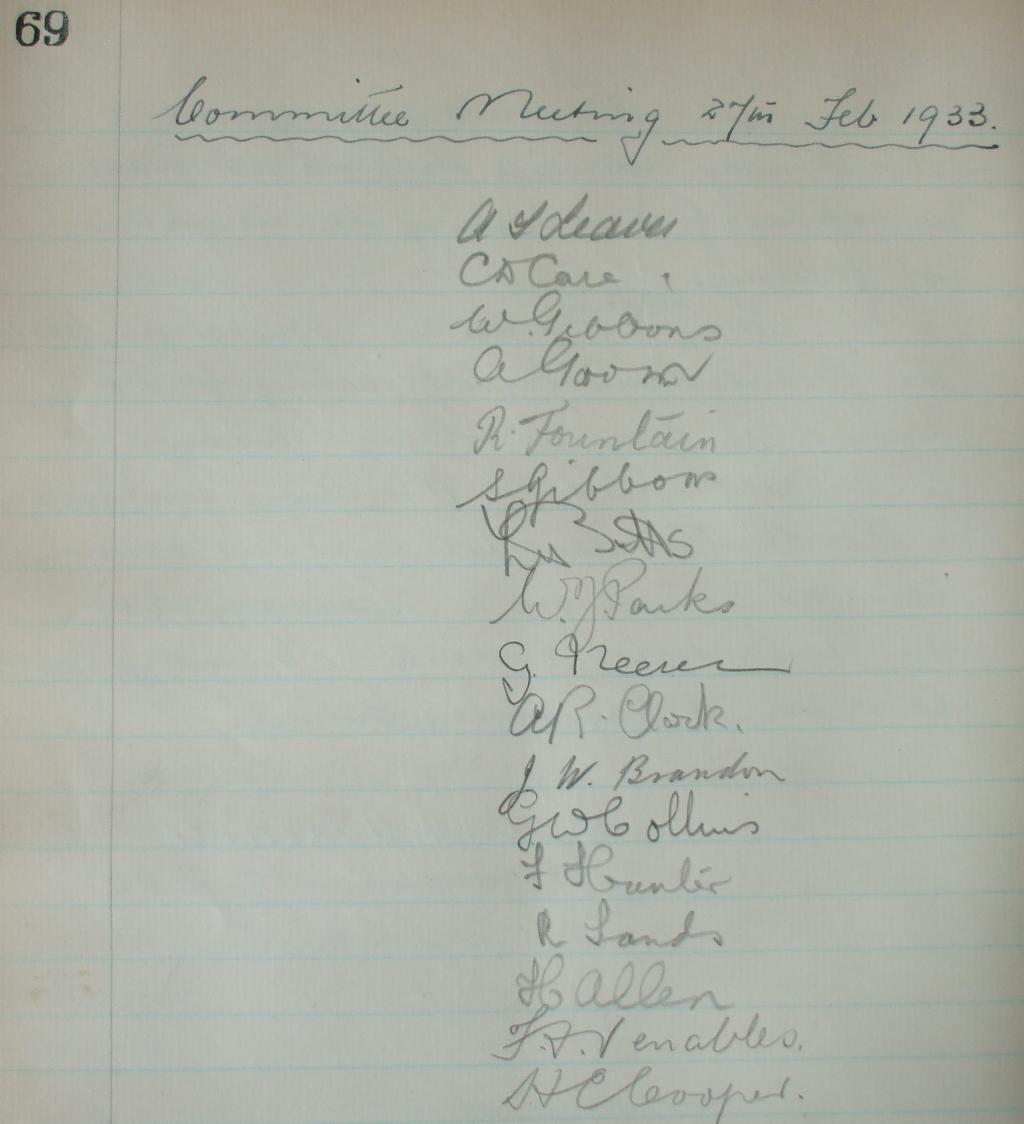 69
Committee Meeting 27th Feb 1933.
A S Leaver
C D Care
W. Gibbons
A
R. Fountain
S Gibbons
Betts
W. J. Parks
G.
A R. Clark.
J W. Brandon
G W Collins
F Hunter
R Sands
H Allen
F. F. Venables.
H C Cooper.